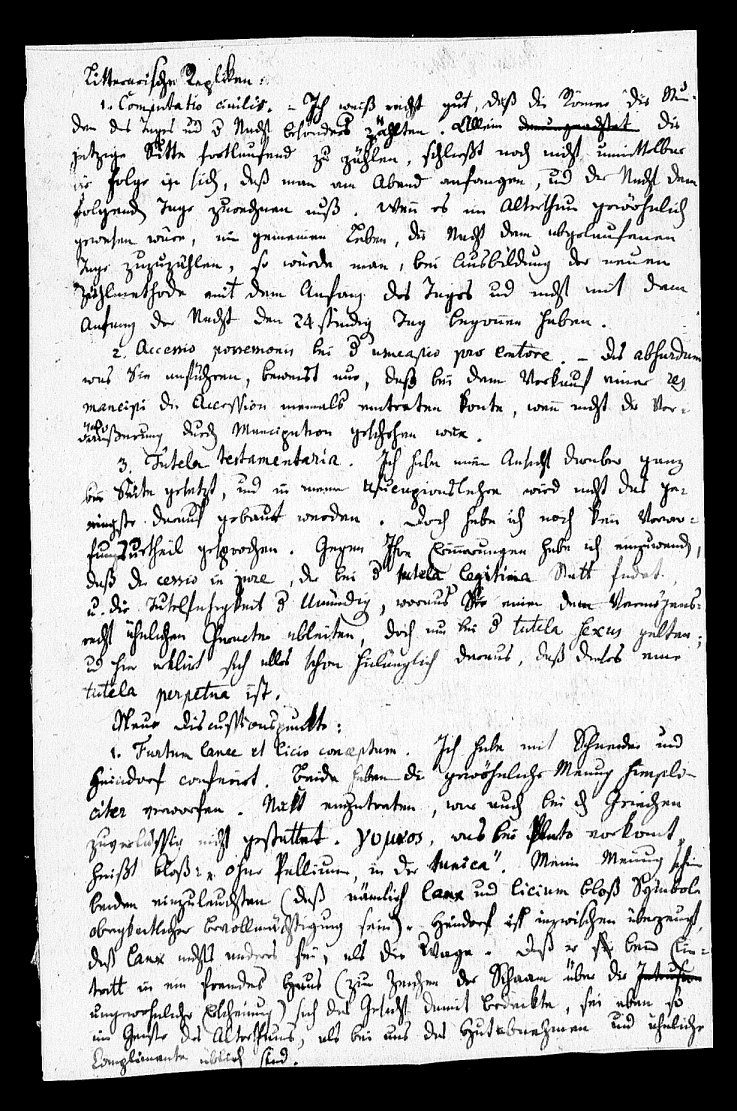 Litterarische Repliken:
1. Computatio civilis. – Ich weiß recht gut, daß die Römer die Stun-
den des Tages und d Nacht besonders zählten. Allein die
jetzige Sitte fortlaufend zu zählen, schließt noch nicht unmittelbar
die Folge in sich, daß man am Abend anfangen, und die Nacht dem
folgenden Tage zurechnen muß. Wenn es im Alterthum gewöhnlich
gewesen wäre, im gemeinen Leben, die Nacht dem abgelaufenen
Tage zuzuzählen, so würde man, bei Ausbildung der neuen
Zählmethode mit dem Anfang des Tages und nicht mit dem
Anfang der Nacht den 24 stündig Tag begonnen haben.
2. Accessio possessionis bei d usucapio pro emtore. – Das absurdum
was Sie anführen, beweist nur, daß bei dem Verkauf einer res
mancipi die Accession niemals eintreten konte, wenn nicht die Ver-
äußerung durch Mancipation geschehen war.
3. Tutela testamentaria. Ich habe meine Ansicht darüber ganz
bei Seite gesetzt, und in meine Usucapionslehre wird nicht das ge-
ringste darauf gebaut werden. Doch habe ich noch kein Verwer-
fungsurtheil gesprochen. Gegen Ihre Erinnerungen habe ich einzuwenden,
daß die cessio in jure, die bei d tutela legitima Statt findet,
u. die Tutelfähigkeit d Unmündig, woraus Sie einen dem Vermögens-
recht ähnlichen Charakter ableiten, doch nur bei d tutela sexus gelten;
und hier erklärt sich alles schon hinlänglich daraus, daß dieses eine
tutela perpetua ist.
Neue Discussionspunkte:
1. Furtum lance et licio conceptum. Ich habe mit Schneider und
Heindorf conferirt. Beide haben die gewöhnliche Meinung simpli-
citer verworfen. Nackt einzutreten, war auch bei d Griechen
zuverlässig nicht gestattet. γυμνος, was bei Plato vorkomt,
heißt bloß: „ohne Pallium, in der tunica". Meine Meinung schien
beiden einzuleuchten (daß nämlich lanx und licium bloß Symbole
obrigkeitlicher Bevollmächtigung sein). Heindorf ist inzwischen überzeugt,
daß lanx nichts anders sei, als die Wage. Daß er beim Ein-
tritt in ein fremdes Haus (zum Zeichen der Schaam über die
ungewöhnliche Erscheinung) sich das Gesicht damit bedeckte, sei eben so
im Geiste des Alterthums, als bei uns das Hutabnehmen und ähnliche
Complimente üblich sind.